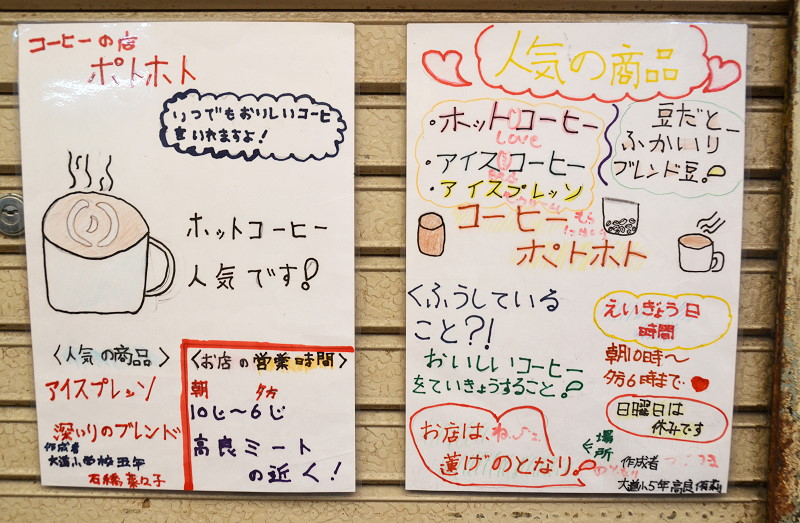 コーヒーの店
ポトホト
いつでもおいしいコーヒ
をいれますよ!
ホットコーヒー
人気です!
〈人気の商品〉
アイスプレッソ
深いりのブレンド
作成者
大道小学校五年
〈お店の営業時間〉
朝 夕方
10じ〜6じ
高良ミート
の近く!
人気の商品
・ホットコーヒー
LOVE
・アイスコーヒー
・アイスプレッソ
豆だと、
ふかいり
ブレンド豆。
コーヒー
ポトホト
くふうしている
こと?!
おいしいコーヒー
をていきょうすること。
えいぎょう日
時間
朝10時〜
夕方6時まで
日曜日は
休みです
お店は、
蓮げのとなり。
場所
作成者
大道小5年高良